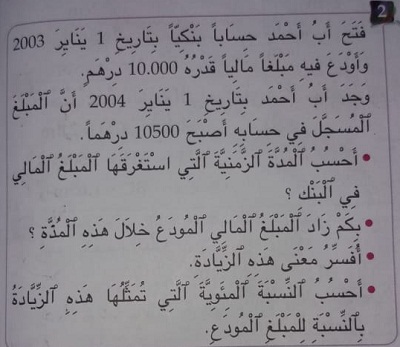 2
فَتَحَ أَبُ أَحْمَد حِسَاباً بَنْكِيّاً بِتَارِيخِ 1 يَنَايِرَ 2003
وَأَوْدَعَ فيهِ مَبْلَغاً مَالِياً قَدْرُهُ 10.000 دِرْهَمٍ.
وَجَدَ أَبُ أَحْمَدٍ بِتَارِيخِ 1 يَنَايِر 2004 أَنَّ ٱلْمَبْلَغَ
ٱلْمُسَجَّلَ فِي حِسَابِهِ أَصْبَحَ 10500 دِرْهَماً.
• أَحْسُبُ ٱلْمُدَّةَ ٱلزَّمَنِيَّةَ ٱلَّتِي ٱسْتَغْرَقَهَا ٱلْمَبْلَغُ ٱلْمَالِي
فِي ٱلْبَنْكِ ؟
• بِكَمْ زَادَ ٱلْمَبْلَغُ ٱلْمَالِي ٱلْمُودَعُ خِلَالَ هَذِهِ ٱلْمُدَّةِ ؟
• أُفَسِّرُ مَعْنَى هَذِهِ ٱلزِّيَادَةِ.
• أَحْسُبُ ٱلنِّسْبَةَ ٱلْمِئَوِيَّةَ ٱلَّتِي تُمَثِّلُهَا هَذِهِ ٱلزِّيَادَةُ
بِٱلنِّسْبَةِ لِلْمَبْلَغِ ٱلْمُودَعِ.